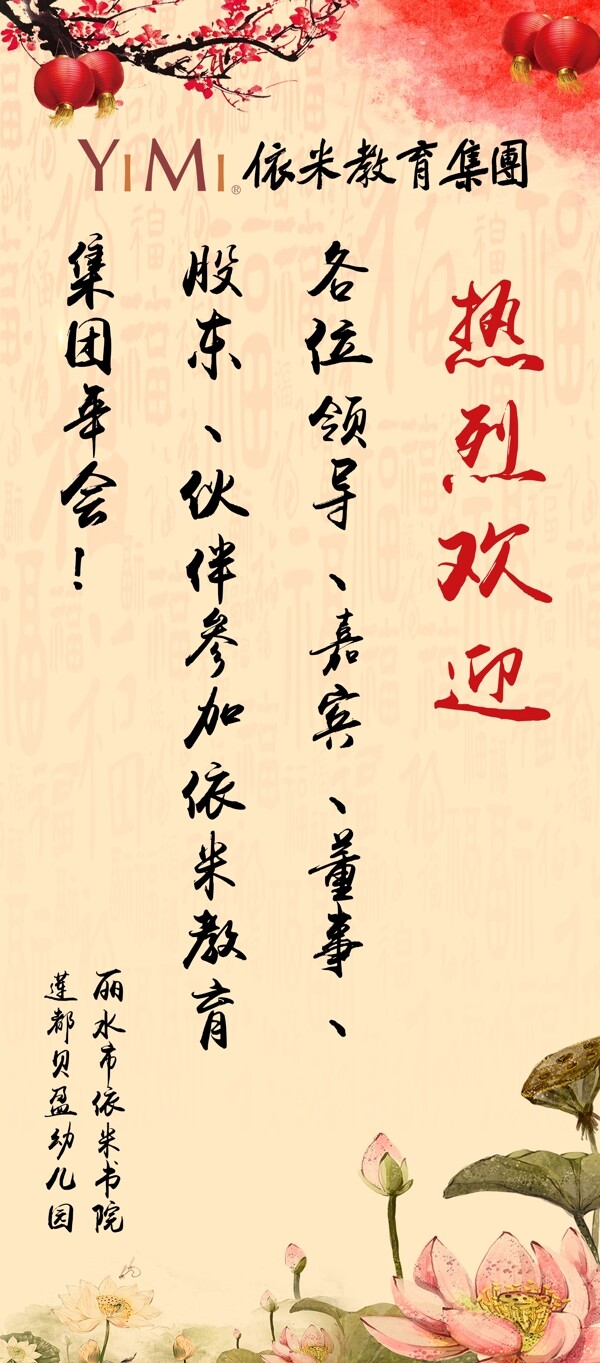 YIMI® 依米教育集團
热烈欢迎
各位领导、嘉宾、董事、
股东、伙伴参加依米教育
集团年会！
丽水市依米书院
莲都贝盈幼儿园